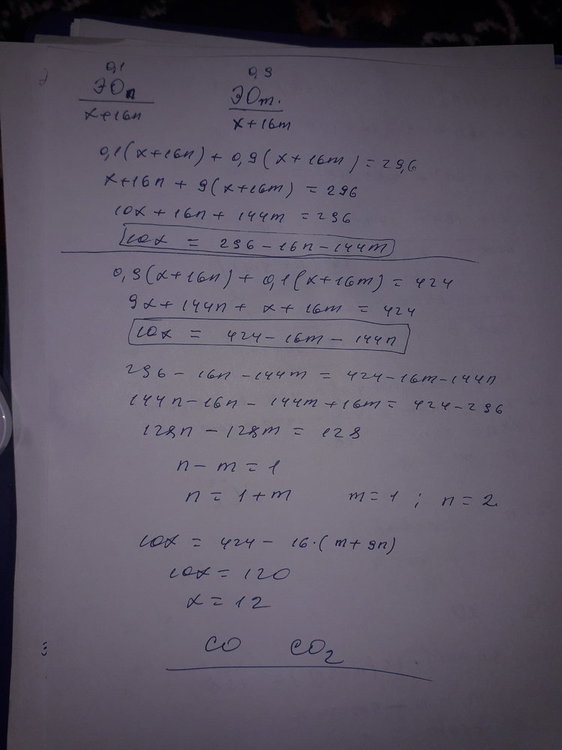 0,1 0,9
ЭOn ЭOm.
x+16n x+16m
0,1(x+16n) + 0,9(x+16m) = 29,6
x+16n + 9(x+16m) = 296
10x + 16n + 144m = 296
10x = 296 - 16n - 144m
0,9(x+16n) + 0,1(x+16m) = 424
9x + 144n + x + 16m = 424
10x = 424 - 16m - 144n
296 - 16n - 144m = 424 - 16m - 144n
144n - 16n - 144m + 16m = 424 - 296
128n - 128m = 128
n - m = 1
n = 1 + m m = 1 ; n = 2
10x = 424 - 16·(m+9n)
10x = 120
x = 12
3
CO CO2